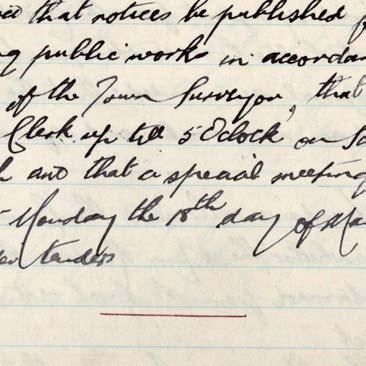 that notices be published
public works in accordan
of the Town Surveyor, that
Clerk up till 5 O'clock on Sa
and that a special meeting
Monday the 18th day of Ma
Tenders